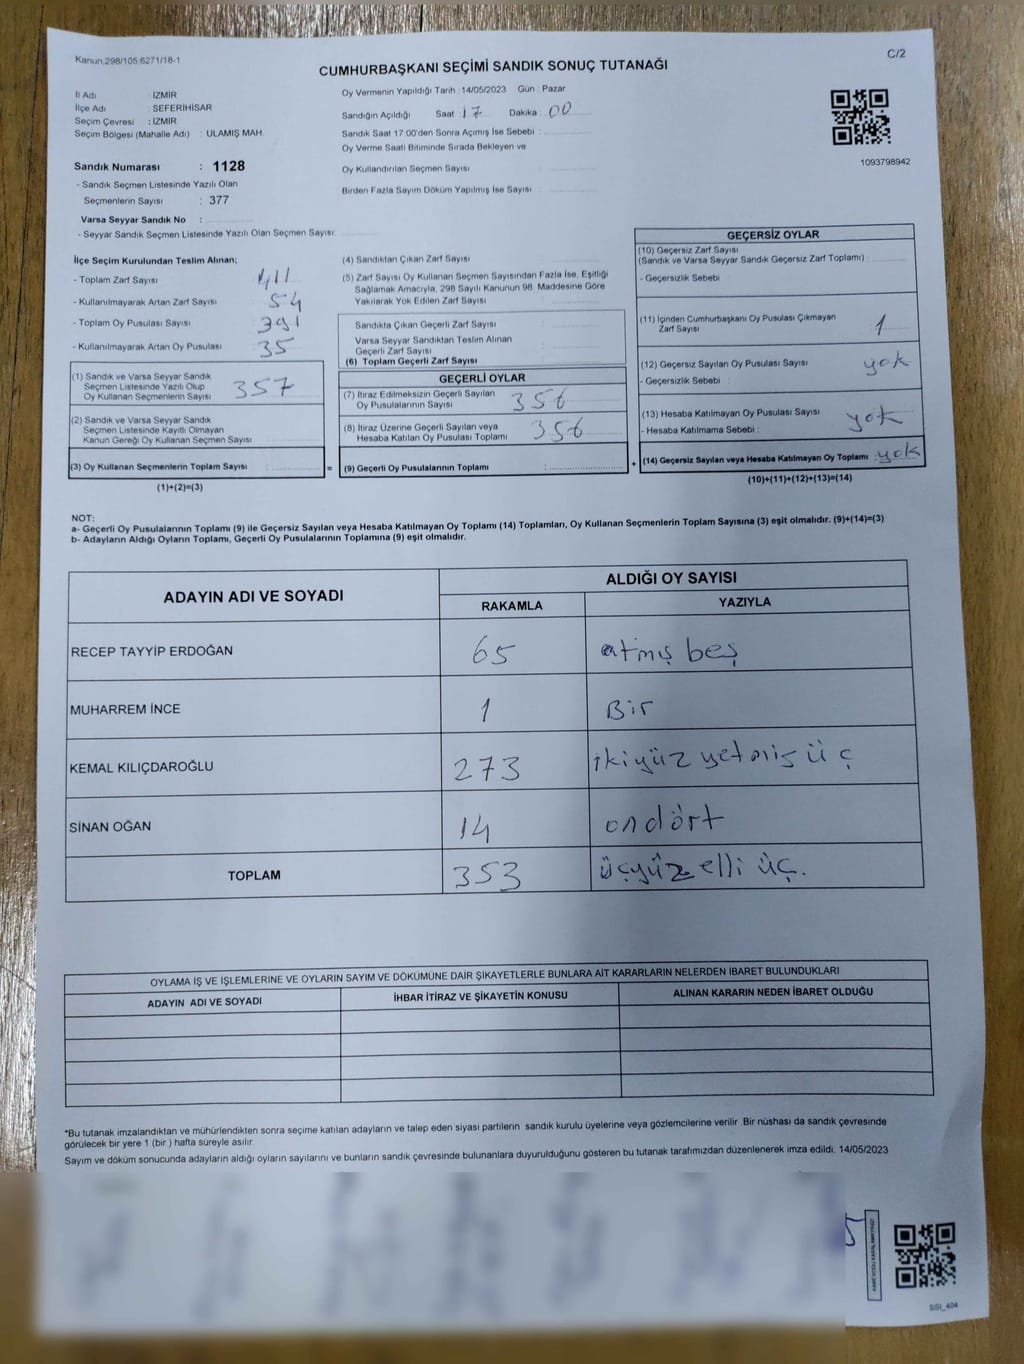 Kanun.298/105.6271/18-1
C/2
CUMHURBAŞKANI SEÇİMİ SANDIK SONUÇ TUTANAĞI
İl Adı : İZMİR
İlçe Adı : SEFERİHİSAR
Seçim Çevresi : İZMİR
Seçim Bölgesi (Mahalle Adı) : ULAMIŞ MAH.
Sandık Numarası : 1128
- Sandık Seçmen Listesinde Yazılı Olan
Seçmenlerin Sayısı : 377
Varsa Seyyar Sandık No :
- Seyyar Sandık Seçmen Listesinde Yazılı Olan Seçmen Sayısı:
Oy Vermenin Yapıldığı Tarih : 14/05/2023 Gün : Pazar
Sandığın Açıldığı Saat : 17 Dakika : 00
Sandık Saat 17:00'den Sonra Açımış İse Sebebi :
Oy Verme Saati Bitiminde Sırada Bekleyen ve
Oy Kullandırılan Seçmen Sayısı :
Birden Fazla Sayım Döküm Yapılmış İse Sayısı :
1093798942
İlçe Seçim Kurulundan Teslim Alınan;
- Toplam Zarf Sayısı : 411
- Kullanılmayarak Artan Zarf Sayısı : 54
- Toplam Oy Pusulası Sayısı : 391
- Kullanılmayarak Artan Oy Pusulası : 35
(1) Sandık ve Varsa Seyyar Sandık
Seçmen Listesinde Yazılı Olup
Oy Kullanan Seçmenlerin Sayısı : 357
(2) Sandık ve Varsa Seyyar Sandık
Seçmen Listesinde Kayıtlı Olmayan
Kanun Gereği Oy Kullanan Seçmen Sayısı :
(3) Oy Kullanan Seçmenlerin Toplam Sayısı :
(1)+(2)=(3)
=
(4) Sandıktan Çıkan Zarf Sayısı :
(5) Zarf Sayısı Oy Kullanan Seçmen Sayısından Fazla İse, Eşitliği
Sağlamak Amacıyla, 298 Sayılı Kanunun 98. Maddesine Göre
Yakılarak Yok Edilen Zarf Sayısı :
Sandıkta Çıkan Geçerli Zarf Sayısı :
Varsa Seyyar Sandıktan Teslim Alınan
Geçerli Zarf Sayısı :
(6) Toplam Geçerli Zarf Sayısı :
GEÇERLİ OYLAR
(7) İtiraz Edilmeksizin Geçerli Sayılan
Oy Pusulalarının Sayısı : 356
(8) İtiraz Üzerine Geçerli Sayılan veya
Hesaba Katılan Oy Pusulası Toplamı : 356
(9) Geçerli Oy Pusulalarının Toplamı :
+
GEÇERSİZ OYLAR
(10) Geçersiz Zarf Sayısı
(Sandık ve Varsa Seyyar Sandık Geçersiz Zarf Toplamı) :
- Geçersizlik Sebebi :
(11) İçinden Cumhurbaşkanı Oy Pusulası Çıkmayan
Zarf Sayısı : 1
(12) Geçersiz Sayılan Oy Pusulası Sayısı : yok
- Geçersizlik Sebebi :
(13) Hesaba Katılmayan Oy Pusulası Sayısı : yok
- Hesaba Katılmama Sebebi :
(14) Geçersiz Sayılan veya Hesaba Katılmayan Oy Toplamı : yok
(10)+(11)+(12)+(13)=(14)
NOT:
a- Geçerli Oy Pusulalarının Toplamı (9) ile Geçersiz Sayılan veya Hesaba Katılmayan Oy Toplamı (14) Toplamları, Oy Kullanan Seçmenlerin Toplam Sayısına (3) eşit olmalıdır. (9)+(14)=(3)
b- Adayların Aldığı Oyların Toplamı, Geçerli Oy Pusulalarının Toplamına (9) eşit olmalıdır.
ADAYIN ADI VE SOYADI
ALDIĞI OY SAYISI
RAKAMLA YAZIYLA
RECEP TAYYİP ERDOĞAN 65 atmış beş
MUHARREM İNCE 1 Bir
KEMAL KILIÇDAROĞLU 273 ikiyüz yetmiş üç
SİNAN OĞAN 14 ondört
TOPLAM 353 üçyüz elli üç.
OYLAMA İŞ VE İŞLEMLERİNE VE OYLARIN SAYIM VE DÖKÜMÜNE DAİR ŞİKAYETLERLE BUNLARA AİT KARARLARIN NELERDEN İBARET BULUNDUKLARI
ADAYIN ADI VE SOYADI İHBAR İTİRAZ VE ŞİKAYETİN KONUSU ALINAN KARARIN NEDEN İBARET OLDUĞU
*Bu tutanak imzalandıktan ve mühürlendikten sonra seçime katılan adayların ve talep eden siyasi partilerin sandık kurulu üyelerine veya gözlemcilerine verilir. Bir nüshası da sandık çevresinde
görülecek bir yere 1 (bir ) hafta süreyle asılır.
Sayım ve döküm sonucunda adayların aldığı oyların sayılarını ve bunların sandık çevresinde bulunanlara duyurulduğunu gösteren bu tutanak tarafımızdan düzenlenerek imza edildi. 14/05/2023
SSI_404